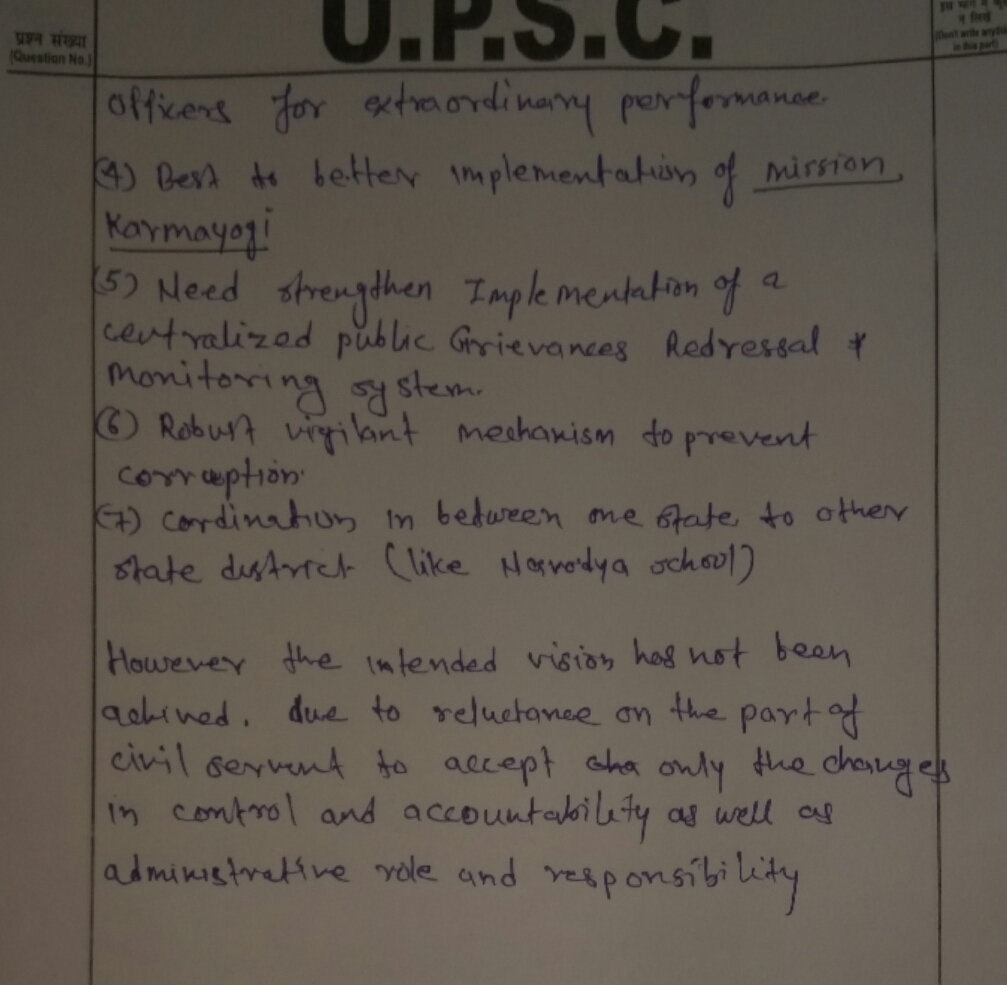 U.P.S.C.
प्रश्न संख्या
(Question No.)
(Don't write anythi
in this part)
officers for extraordinary performance.
(4) Best to better implementation of mission
Karmayogi
(5) Need strengthen Implementation of a
centralized public Grievances Redressal &
monitoring system.
(6) Robust vigilant mechanism to prevent
corruption.
(7) cordination in between one state to other
state district (like Navodya school)
However the intended vision has not been
achived. due to reluctance on the part of
civil servent to accept cha only the changes
in control and accountability as well as
administrative role and responsibility